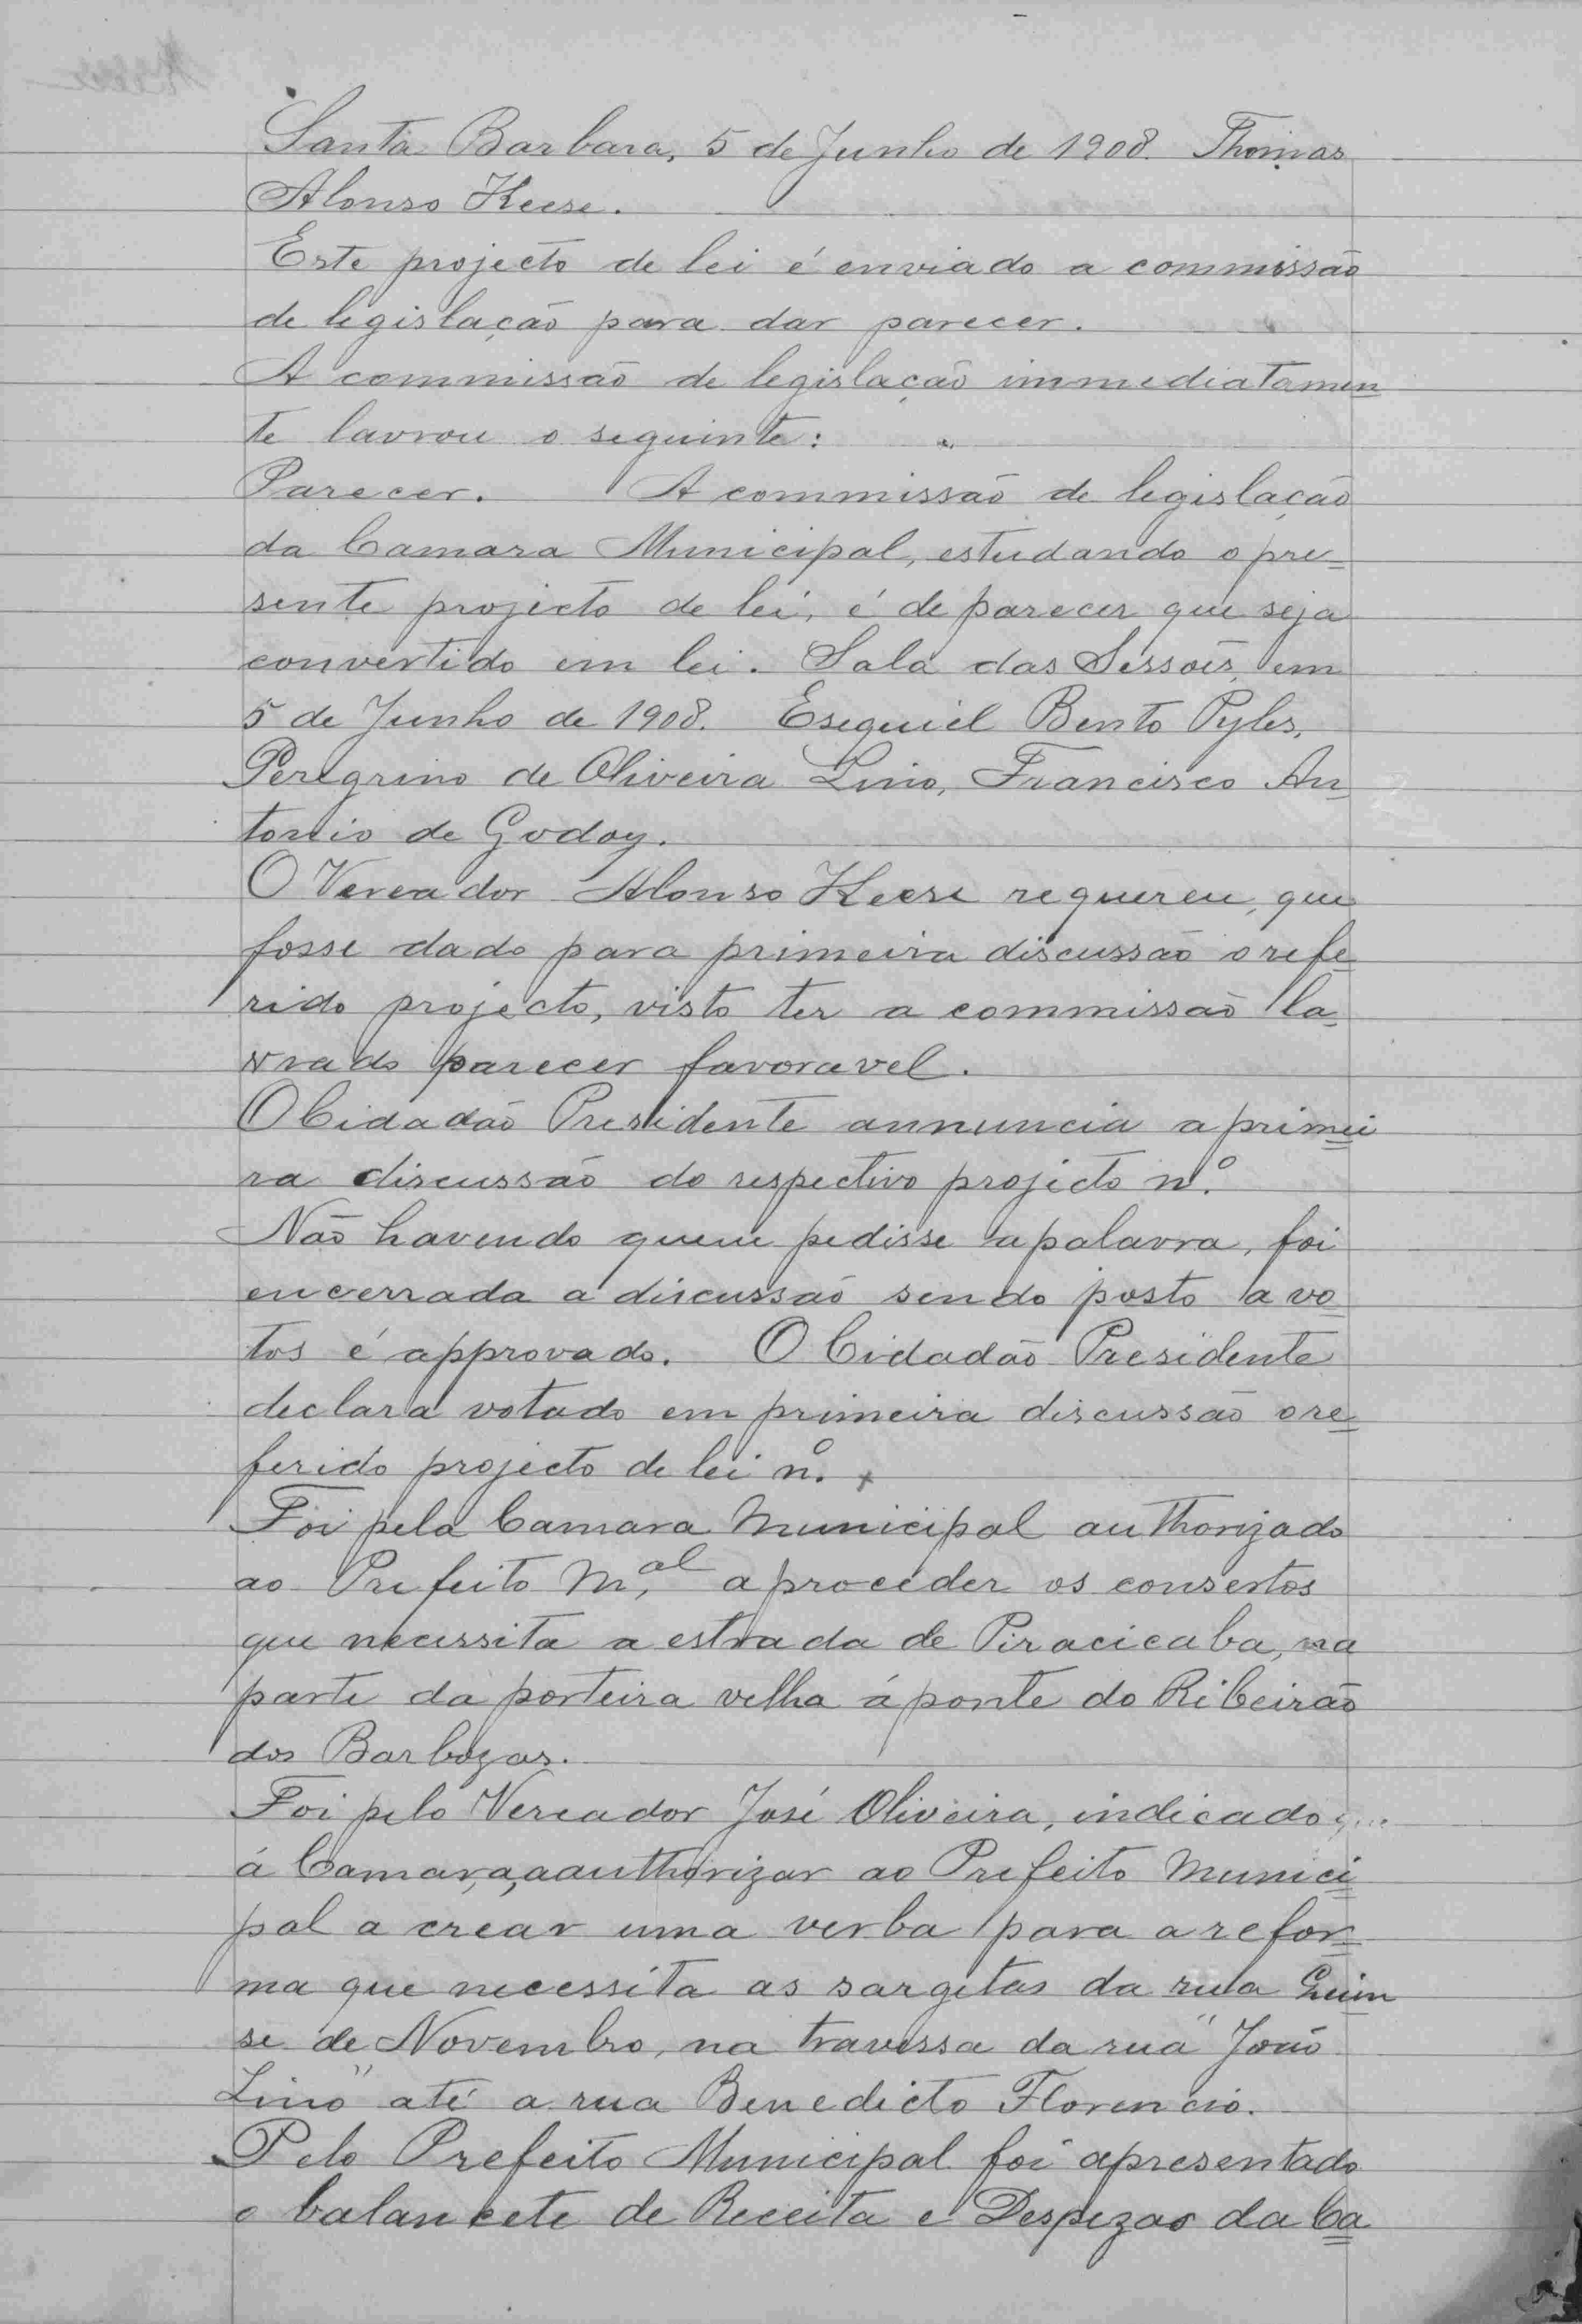 Santa Barbara, 5 de Junho de 1908. Thomas
Alonso Keese.
Este projecto de lei é enviado a commissão
de legislação para dar parecer.
A commissão de legislação immediatamen
te lavrou o seguinte:
Parecer. A commissão de legislação
da Camara Municipal, estudando o pre=
sente projecto de lei, é de parecer que seja
convertido em lei. Sala das Sessões, em
5 de Junho de 1908. Esequiel Bento Pyles,
Peregrino de Oliveira Lino, Francisco An
tonio de Godoy.
O Vereador Alonso Keese requereu, que
fosse dado para primeira discussão o refe
rido projecto, visto ter a commissão la
vrado parecer favoravel.
O Cidadão Presidente annuncia a primei
ra discussão do respectivo projecto nº.
Não havendo quem pedisse a palavra, foi
encerrada a discussão sendo posto a vo
tos é approvado. O Cidadão Presidente
declara votado em primeira discussão o re=
ferido projecto de lei nº. x
Foi pela Camara Municipal authorizado
ao Prefeito M.al a proceder os consertos
que necessita a estrada de Piracicaba, na
parte da porteira velha á ponte do Ribeirão
dos Barbozas.
Foi pelo Vereador José Oliveira, indicado que
á Camara, a authorizar ao Prefeito Munici
pal a crear uma verba para a refor=
ma que necessita as sargetas da rua Quin
se de Novembro, na travessa da rua "João
Lino" até a rua Benedicto Florencio.
Pelo Prefeito Municipal foi apresentado
o balancete de Receita e Despezas da Ca